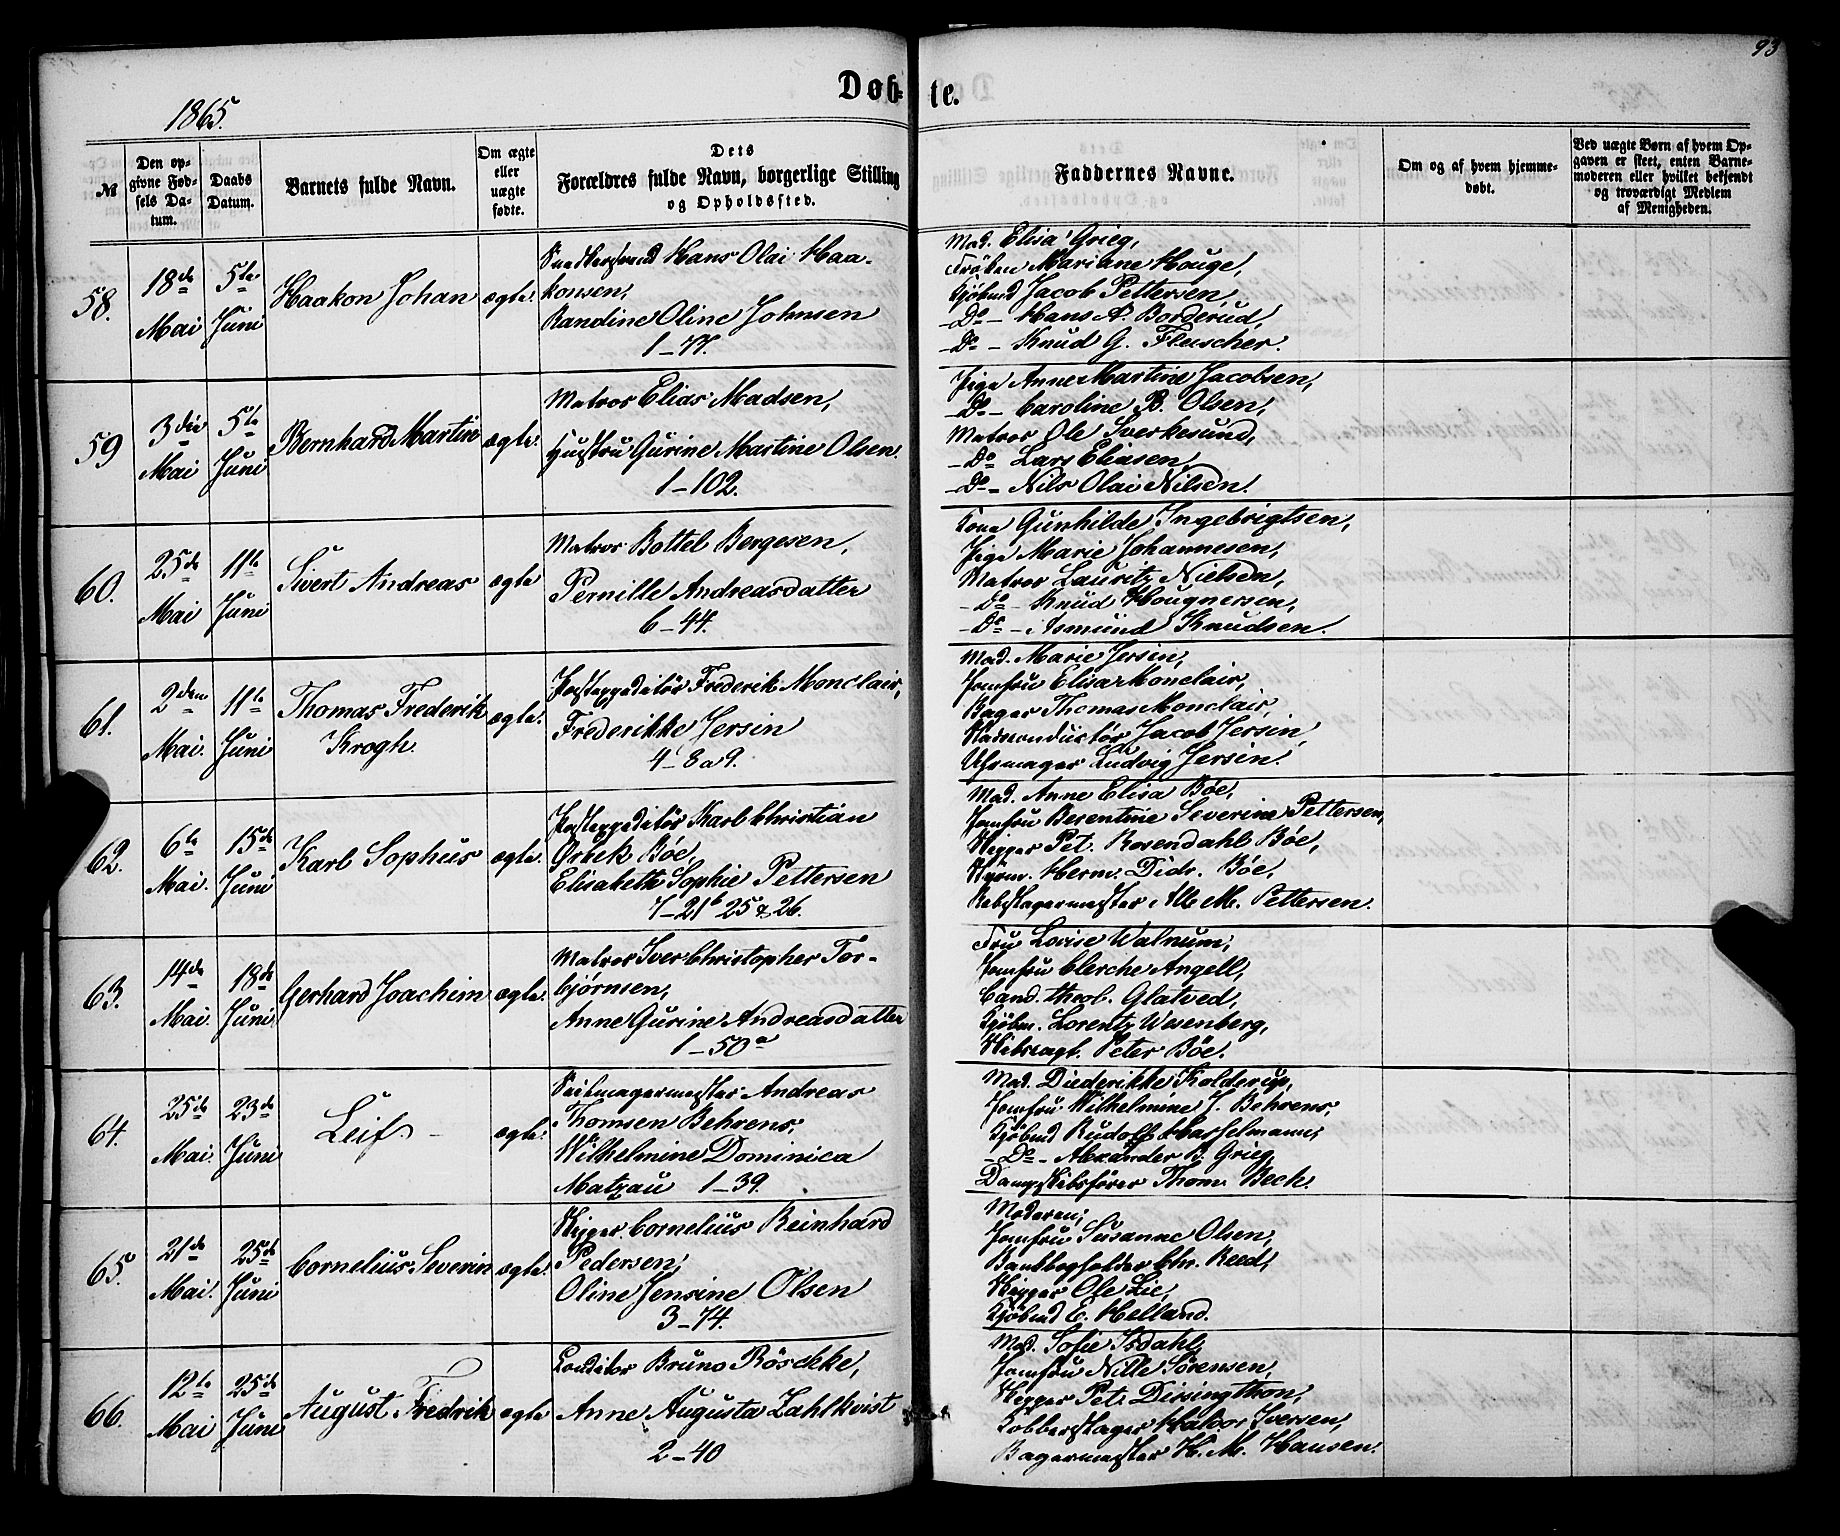 93
Døb- te.
1865.
№
Den op-
givne Fød-
sels Da-
tum.
Daabs
Datum.
Barnets fulde Navn.
Om ægte
eller
uægte
fødte.
Dets
Forældres fulde Navn, borgerlige Stilling
og Opholdssted.
Faddernes Navne.
Om og af hvem hjemme-
døbt.
Ved uægte Børn af hvem Op-
gaven er skeet, enten Barne-
moderen eller hvilket bekjendt
og troværdigt Medlem
af Menigheden.
58.
18de
Mai
5te
Juni
Haakon Johan
ægte.
Snedkersvend Hans Olai Haa-
konsen,
Randine Oline Johnsen
1-77.
Mad. Elisa Grieg,
Frøken Mariane Houge,
Kjøbmd Jacob Pettersen,
-Do- Hans A. Borderud,
-Do- Knud G. Fleischer.
59
3die
Mai
5te
Juni
Bernhard Martin
ægte.
Matros Elias Madsen,
Hustru Gurine Martine Olsen.
1-102.
Pige Anne Martine Jacobsen,
-Do- Caroline B. Olsen,
Matros Ole Sverkesund,
-Do Lars Eliasen,
-Do- Nils Olai Nilsen.
60.
25de
Mai
11te
Juni
Sivert Andreas
ægte
Matros Bottel Børgesen,
Pernille Andreasdatter
6-44.
Kone Gunhilde Ingebrigtsen,
Pige Marie Johannesen,
Matros Lauritz Nielsen,
-Do- Knud Hougnersen,
-Do- Asmund Knudsen.
61.
2den
Mai.
11te
Juni
Thomas Frederik
Krogh.
ægte.
Postexpeditør Frederik Monclair,
Frederikke Jersin
4-8a9.
Mad. Marie Jersin,
Jomfru Elisa Monclair,
Bager Thomas Monclair,
Stadsconductør Jacob Jersin,
Uhrmager Ludvig Jersin.
62.
6te
Mai.
15de
Juni
Karl Sophus
ægte.
Postexpeditør Karl Christian
Grbek Bøe,
Elisabeth Sophie Pettersen
7-21b 25 & 26.
Mad. Anne Elisa Bøe,
Jomfru Berentine Severine Pettersen,
Skipper Pet. Rosendahl Bøe,
Styrm. Herm. Didr. Bøe,
Rebslagermester Alb. M. Pettersen.
63.
14de
Mai.
18de
Juni.
Gerhard Joachim
ægte.
Matros Iver Christopher Tor-
bjørnsen,
Anne Gurine Andreasdatter
1-50a
Fru Lovise Walnum,
Jomfru Clerche Angell,
Cand. theol. Glatved,
Kjøbm. Lorentz Wesenberg,
Skibsregt. Peter Bøe.
64.
25de
Mai.
23de
Juni
Leif.
ægte.
Seilmagermester Andreas
Thomsen Behrens,
Wilhelmine Dominica
Matzau 1-39.
Mad. Diederikke Kolderup,
Jomfru Wilhelmine J. Behrens,
Kjøbmd Rudolf Hasselmann,
-Do- Alexander B. Grieg,
Dampskibsfører Thom. Beck.
65.
21de
Mai.
25de
Juni
Cornelius Severin
ægte.
Skipper Cornelius Reinhard
Pedersen,
Oline Jensine Olsen
3-74.
Moderen,
Jomfru Susanne Olsen,
Bankbogholder Chr. Reed,
Skipper Ole Lie,
Kjøbmd E. Helland.
66.
12te
Mai
25de
Juni
August Fredrik
ægte
Conditor Bruno Röschke,
Anne Augusta Zahlkvist
2-40
Mad. Sofie Isdahl,
Jomfru Nille Sørensen,
Skipper Pet. Dissingthon,
Kobberslager Halvor Iversen,
Bagermester H. M. Hansen.